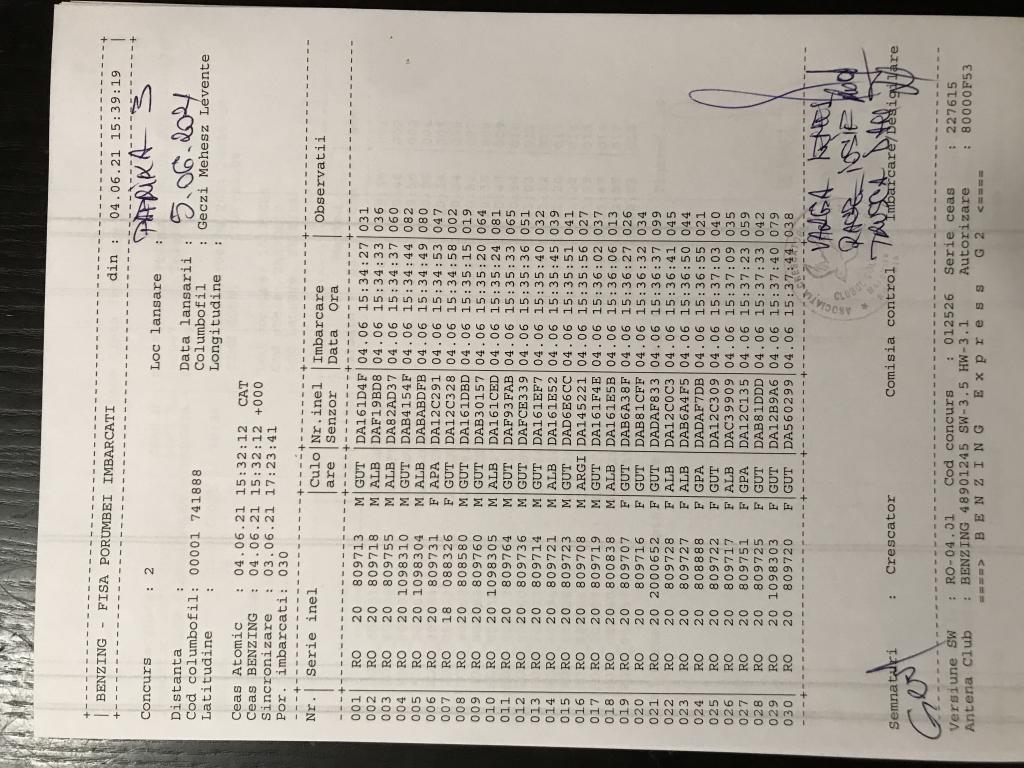 BENZING - FISA PORUMBEI IMBARCATI din : 04.06.21 15:39:19
Concurs : 2 Loc lansare : 3
Distanta : Data lansarii : 5.06.2021
Cod columbofil: 00001 741888 Columbofil : Geczi Mehesz Levente
Latitudine : Longitudine :
Ceas Atomic : 04.06.21 15:32:12 CAT
Ceas BENZING : 04.06.21 15:32:12 +000
Sincronizare : 03.06.21 17:23:41
Por. imbarcati: 030
Nr. | Serie inel |Culo|Nr inel |Imbarcare | Observatii
are |Senzor |Data Ora
001 RO 20 809713 M GUT DA161D4F 04.06 15:34:27 031
002 RO 20 809718 M ALB DAF19BD8 04.06 15:34:33 036
003 RO 20 809755 M ALB DA82AD37 04.06 15:34:37 060
004 RO 20 1098310 M GUT DAB4154F 04.06 15:34:44 082
005 RO 20 1098304 M ALB DABABDFB 04.06 15:34:49 080
006 RO 20 809731 F APA DA12C291 04.06 15:34:53 047
007 RO 18 088326 F GUT DA12C328 04.06 15:34:58 002
008 RO 20 808580 M GUT DA161DBD 04.06 15:35:15 019
009 RO 20 809760 M GUT DAB30157 04.06 15:35:20 064
010 RO 20 1098305 M ALB DA161CED 04.06 15:35:24 081
011 RO 20 809764 M GUT DAF93FAB 04.06 15:35:33 065
012 RO 20 809736 M GUT DAFCE339 04.06 15:35:36 051
013 RO 20 809714 M GUT DA161EF7 04.06 15:35:40 032
014 RO 20 809721 M ALB DA161E52 04.06 15:35:45 039
015 RO 20 809723 M GUT DAD6E6CC 04.06 15:35:51 041
016 RO 20 809708 M ARGI DA145221 04.06 15:35:56 027
017 RO 20 809719 M GUT DA161F4E 04.06 15:36:02 037
018 RO 20 800838 M ALB DA161E5B 04.06 15:36:16 013
019 RO 20 809707 F GUT DAB6A3BF 04.06 15:36:27 026
020 RO 20 809716 F GUT DAB81CFF 04.06 15:36:32 034
021 RO 20 2000652 F GUT DADAF833 04.06 15:36:37 099
022 RO 20 809728 F ALB DA12C0C3 04.06 15:36:41 045
023 RO 20 809727 F ALB DAB6A4F5 04.06 15:36:50 044
024 RO 20 808888 F GPA DADAF7DB 04.06 15:36:55 021
025 RO 20 809722 F GUT DA12C309 04.06 15:37:03 040
026 RO 20 809717 F ALB DAC39909 04.06 15:37:09 035
027 RO 20 809751 F GPA DA12C135 04.06 15:37:23 059
028 RO 20 809725 F GUT DAB81DDD 04.06 15:37:33 042
029 RO 20 1098303 F GUT DA12B9A6 04.06 15:37:40 079
030 RO 20 809720 F GUT DA560299 04.06 15:37:44 038
VARGA
IOSIF
DAN
Semnaturi : Crescator Comisia control Imbarcare/Desigilare
Versiune SW : RO-04.01 Cod concurs : 012526 Serie ceas : 227615
Antena Club : BENZING 48901245 SW-3.5 HW-3.1 Autorizare : 80000F53
====> B E N Z I N G E x p r e s s G 2 <====